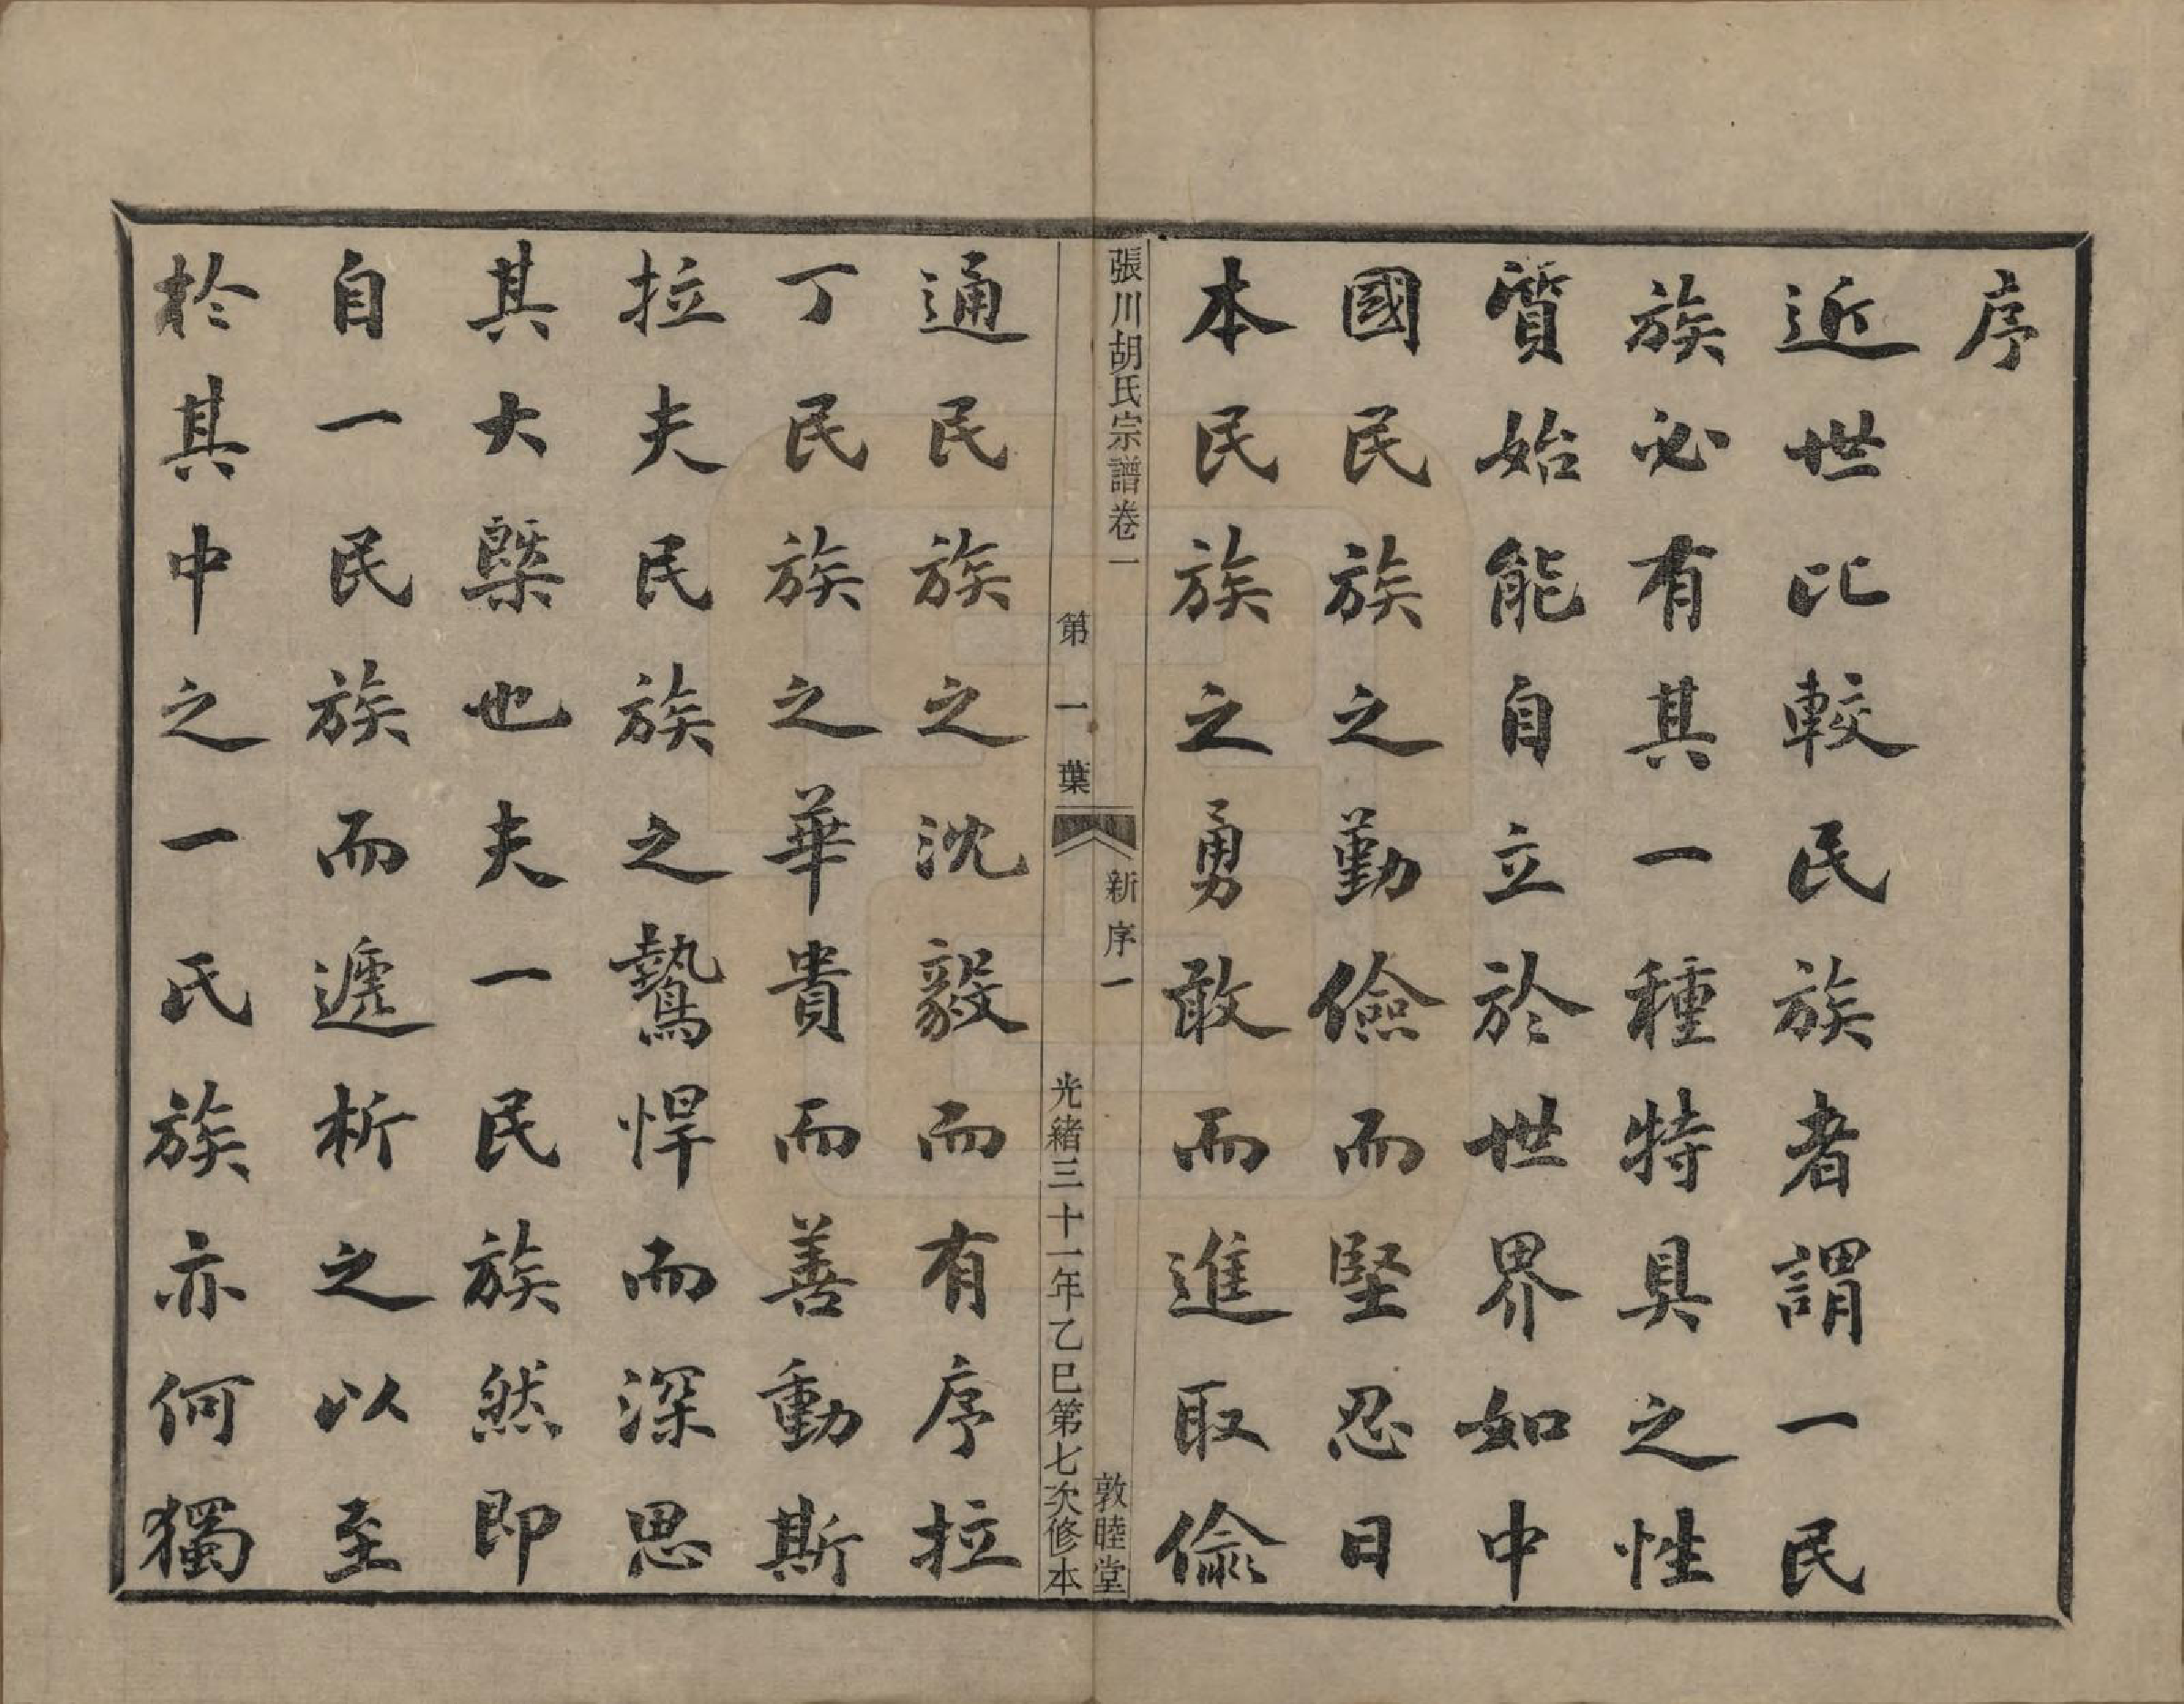 序
近世比較民族者謂一民
族必有其一種特具之性
質始能自立於世界如中
國民族之勤儉而堅忍日
本民族之勇敢而進取條
張川胡氏宗譜卷一
新序一
敦睦堂
第一葉
光緒三十一年乙巳第七次修本
通民族之沈毅而有序拉
丁民族之華貴而善動斯
拉夫民族之鷙悍而深思
其大槩也夫一民族然即
自一民族而遞析之以至
於其中之一氏族亦何獨